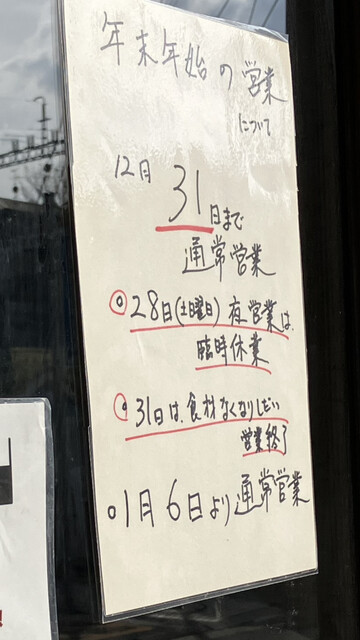 年末年始の営業
について
12月
31日まで
通常営業
○28日(土曜日)夜営業は、
臨時休業
○31日は、食材なくなりしだい
営業終了
○1月6日より通常営業